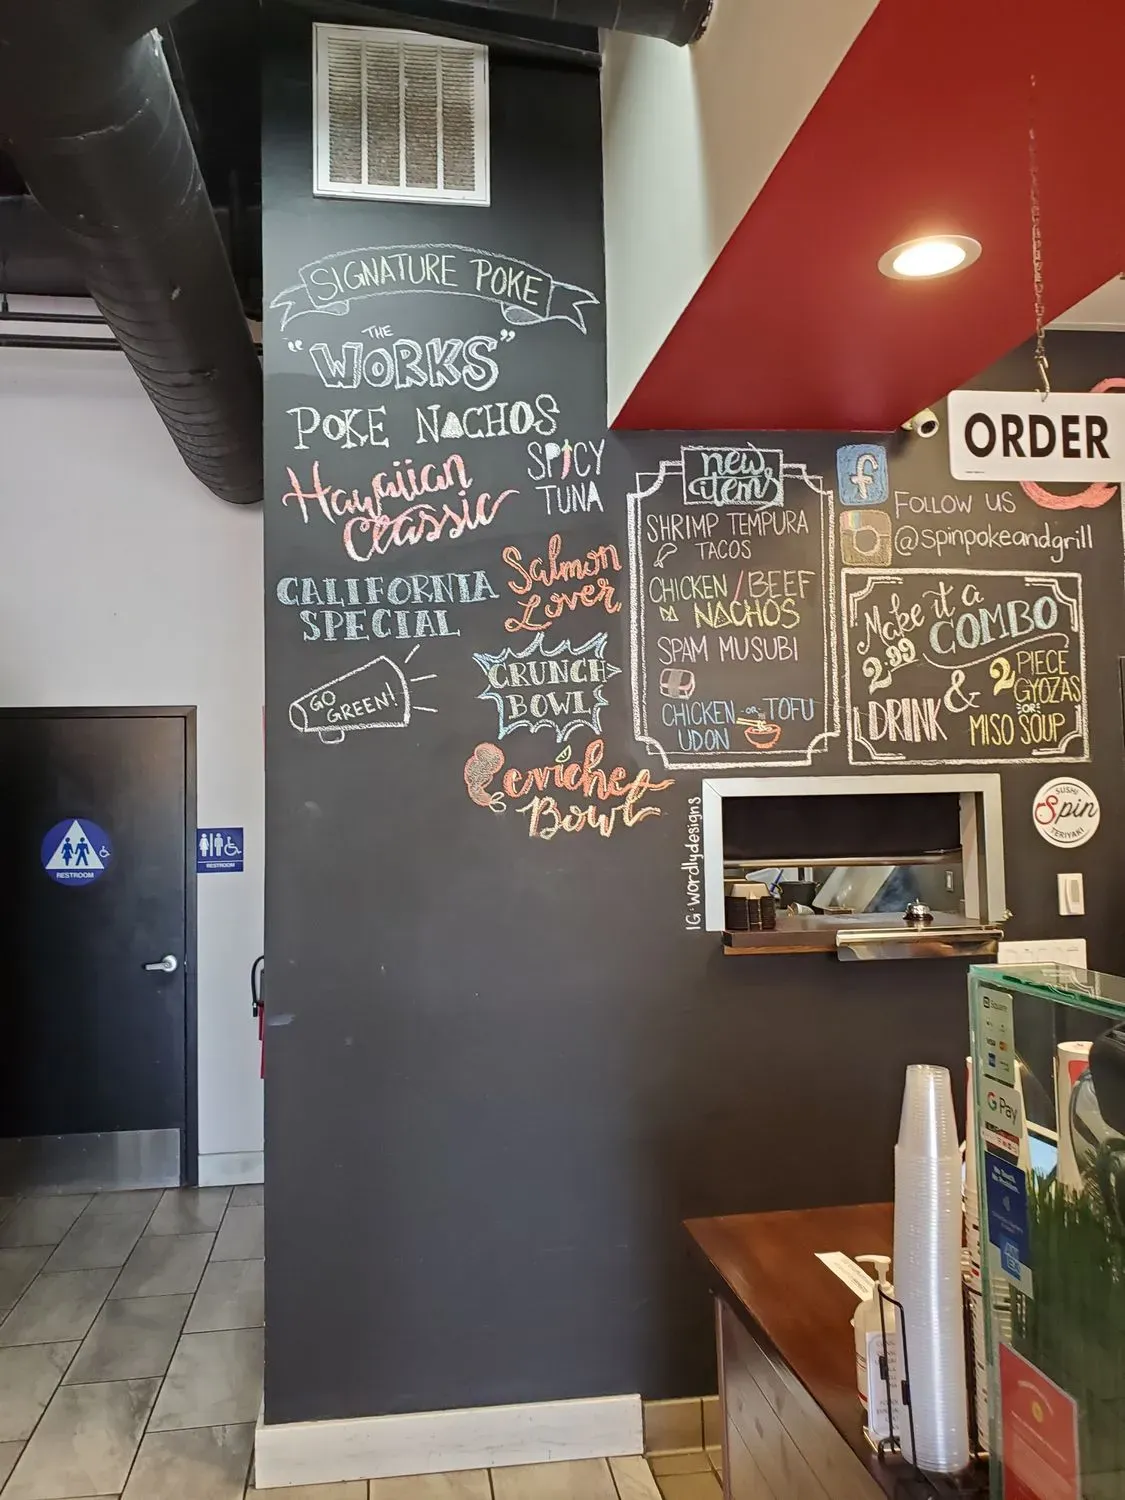 SIGNATURE POKE
THE
"WORKS"
POKE NACHOS
Hawaiian
Classic
SPICY
TUNA
CALIFORNIA
SPECIAL
Salmon
Lover
GO
GREEN!
CRUNCH
BOWL
Ceviche
Bowl
new
items
SHRIMP TEMPURA
TACOS
CHICKEN/BEEF
NACHOS
SPAM MUSUBI
CHICKEN -OR- TOFU
UDON
ORDER
FOLLOW US
@spinpokeandgrill
Make it a
COMBO
2.99
DRINK
&
2 PIECE
GYOZAS
OR
MISO SOUP
IG: wordlydesigns
SUSHI
Spin
TERIYAKI
RESTROOM
RESTROOM
Square
G Pay